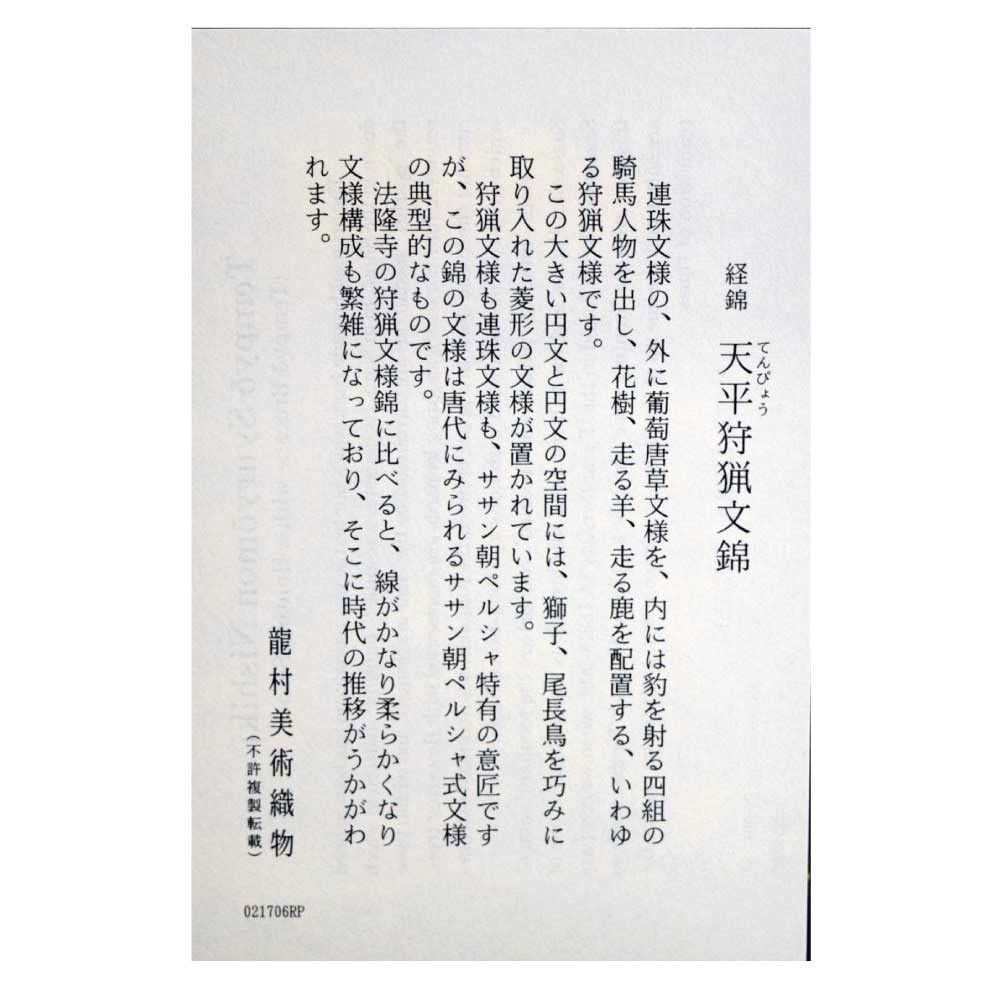 経錦 天平狩猟文錦
てんぴょう
連珠文様の、外に葡萄唐草文様を、内には豹を射る四組の
騎馬人物を出し、花樹、走る羊、走る鹿を配置する、いわゆ
る狩猟文様です。
この大きい円文と円文の空間には、獅子、尾長鳥を巧みに
取り入れた菱形の文様が置かれています。
狩猟文様も連珠文様も、ササン朝ペルシャ特有の意匠です
が、この錦の文様は唐代にみられるササン朝ペルシャ式文様
の典型的なものです。
法隆寺の狩猟文様錦に比べると、線がかなり柔らかくなり
文様構成も繁雑になっており、そこに時代の推移がうかがわ
れます。
龍村美術織物
(不許複製転載)
021706RP